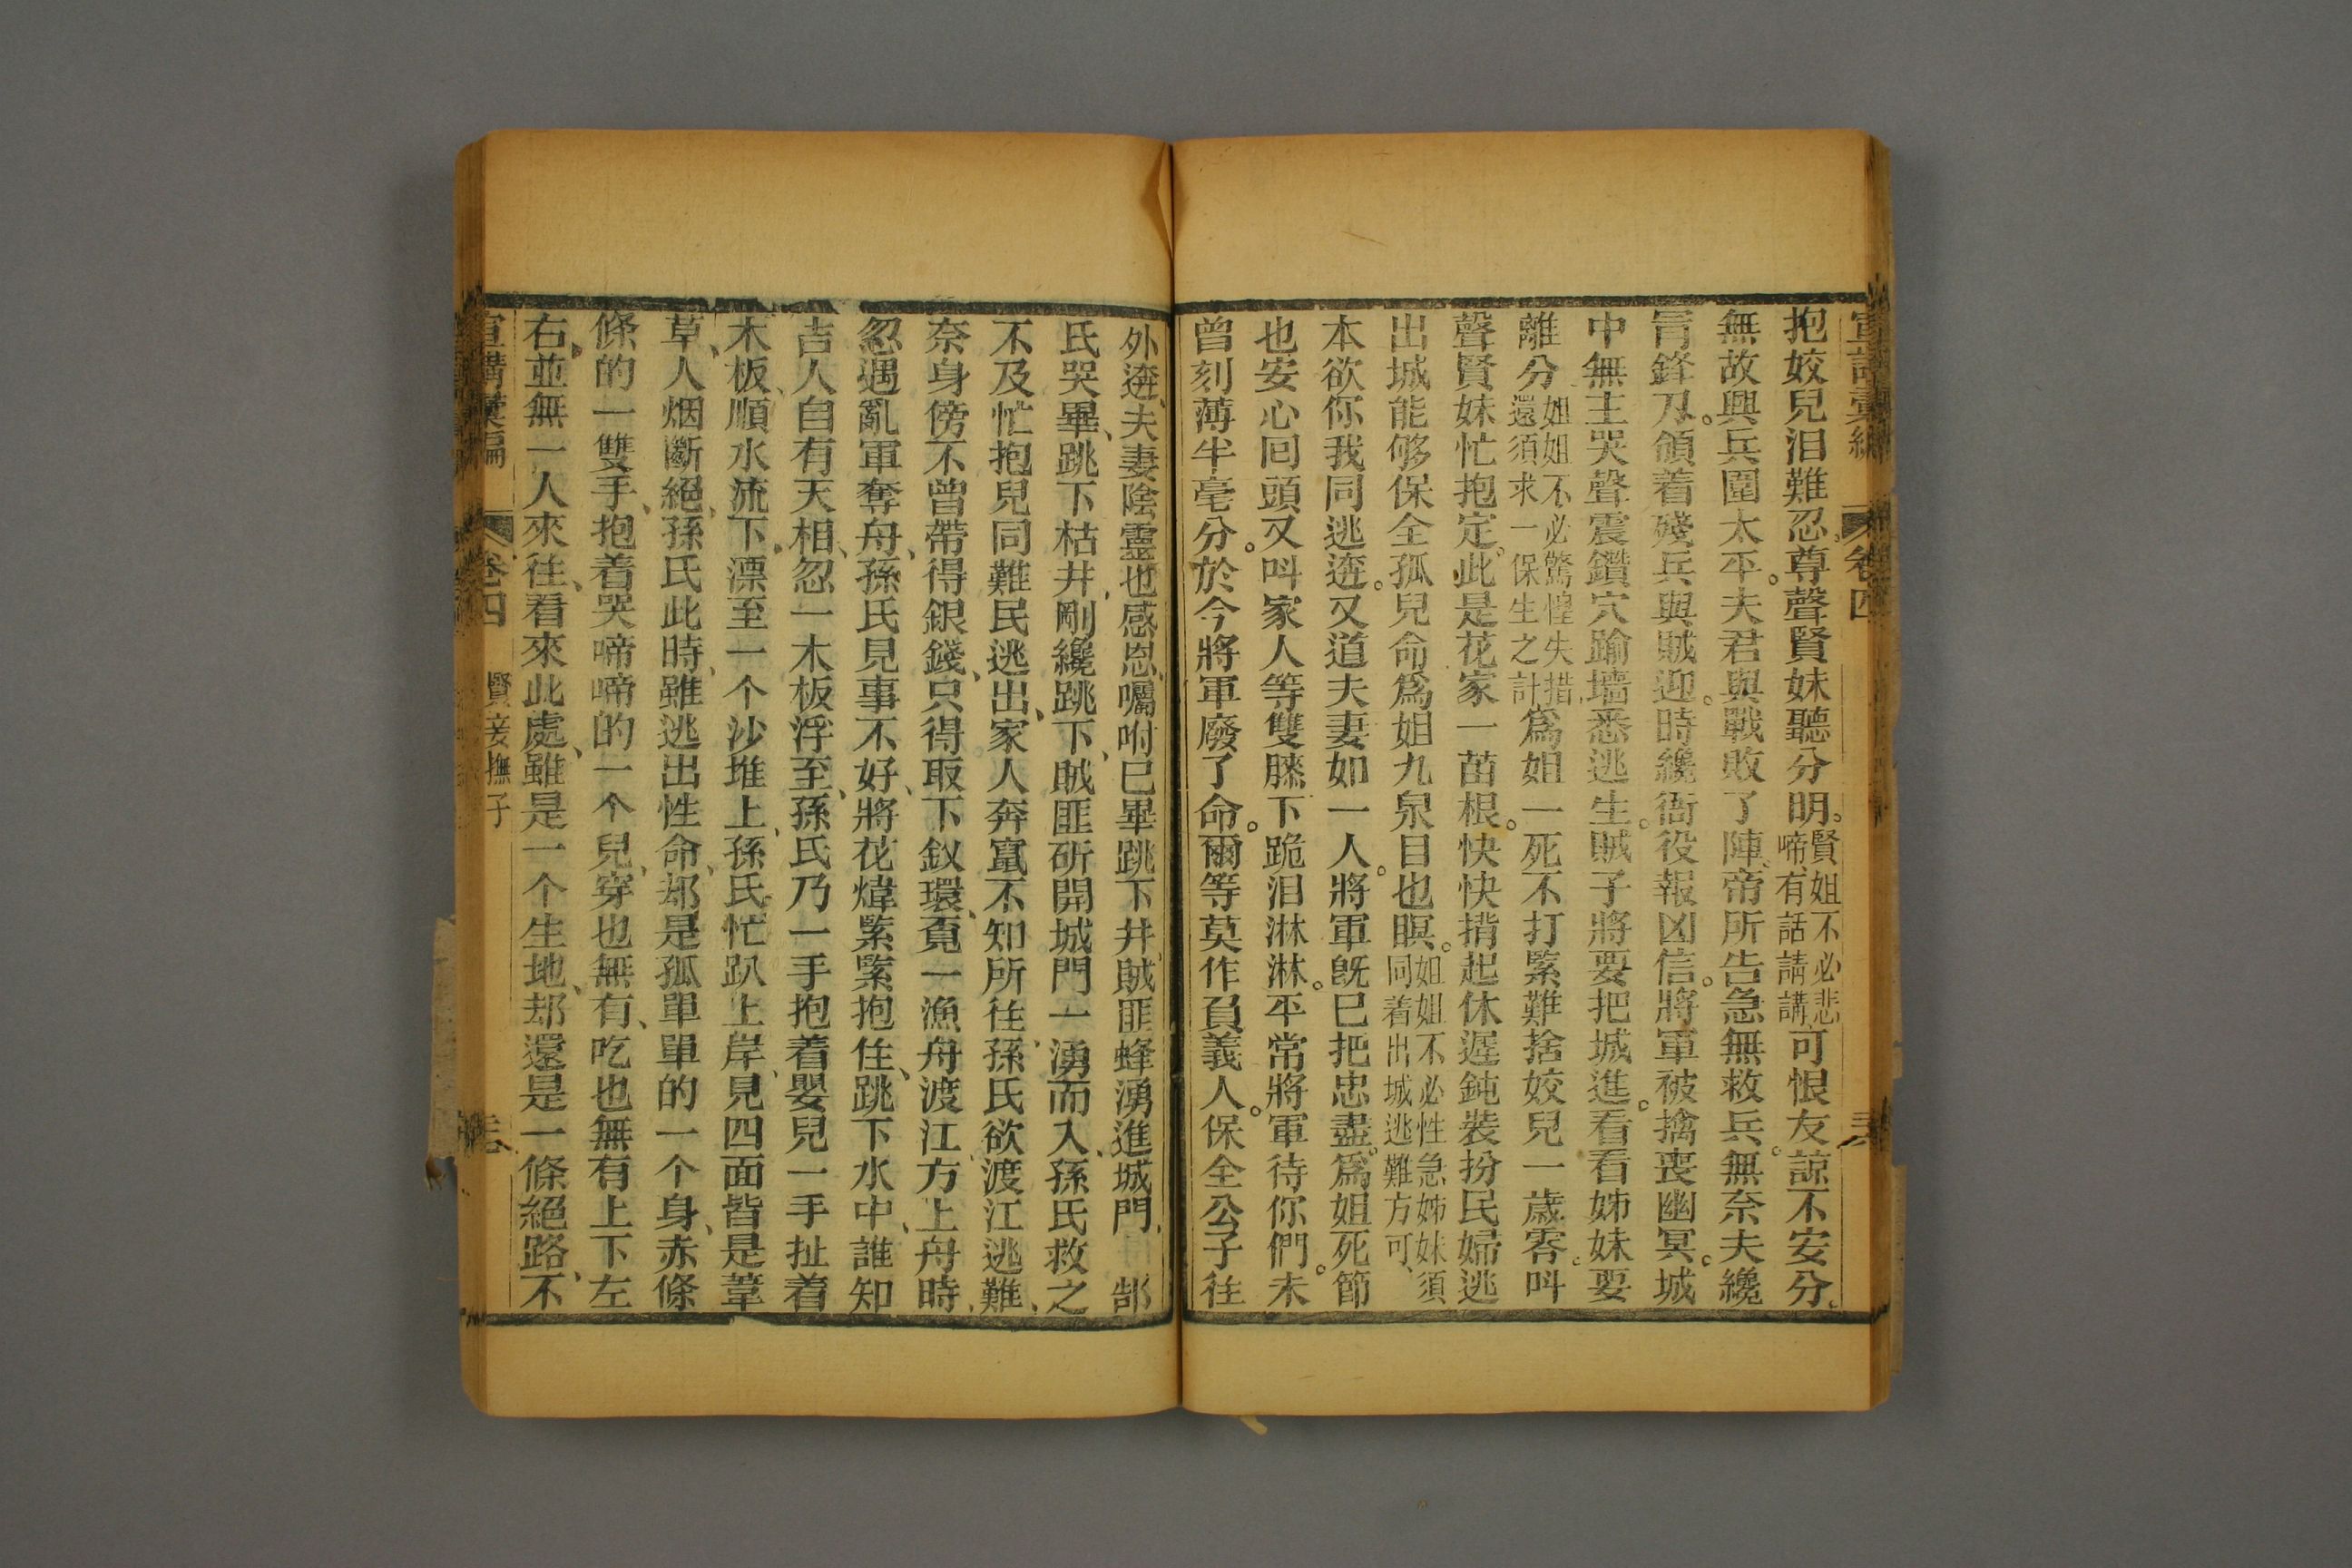 宣講彙編 卷四
抱姣兒泪難忍。尊聲賢妹聽分明。賢姐不必悲啼、有話請講、可恨友諒不安分。
無故興兵圍太平。夫君與戰敗了陣、帝所告急無救兵。無奈夫纔
冐鋒刀。領着殘兵與賊迎。時纔衙役報凶信。將軍被擒喪幽冥。城
中無主哭聲震鑽穴踰墻悉逃生。賊子將要把城進。看看姊妹要
離分、姐姐不必驚惶失措、還須求一保生之計為姐一死不打緊難捨姣兒一歲零。叫
聲賢妹忙抱定。此是花家一苗根。快快揹起休遲鈍裝扮民婦逃
出城能够保全孤兒命為姐九泉目也瞑。姐姐不必性急姊妹須同着出城逃難方可、
本欲你我同逃逩。又道夫妻如一人。將軍旣已把忠盡。為姐死節
也安心囘頭又呌家人等雙膝下跪泪淋淋。平常將軍待你們。未
曾刻薄半毫分。於今將軍廢了命。爾等莫作負義人。保全公子往
外逩、夫妻陰靈也感恩、囑咐已畢跳下井、賊匪蜂湧進城門、 郜
氏哭畢、跳下枯井、剛纔跳下、賊匪斫開城門一湧而入、孫氏救之
不及忙抱兒同難民逃出、家人奔竄不知所往、孫氏欲渡江逃難、
奈身傍不曾帶得銀錢、只得取下釵環、覔一漁舟渡江、方上舟時、
忽遇亂軍奪舟、孫氏見事不好、將花煒緊緊抱住、跳下水中、誰知
吉人自有天相、忽一木板浮至、孫氏乃一手抱着嬰兒一手扯着
木板、順水流下、漂至一个沙堆上、孫氏忙趴上岸、見四面皆是葦
草、人烟斷絕、孫氏此時、雖逃出性命、却是孤單單的一个身、赤條
條的一雙手、抱着哭啼啼的一个兒、穿也無有、吃也無有上下左
右、並無一人來往、看來此處、雖是一个生地、却還是一條絕路、不
宣講彙編 卷四 賢妾撫子